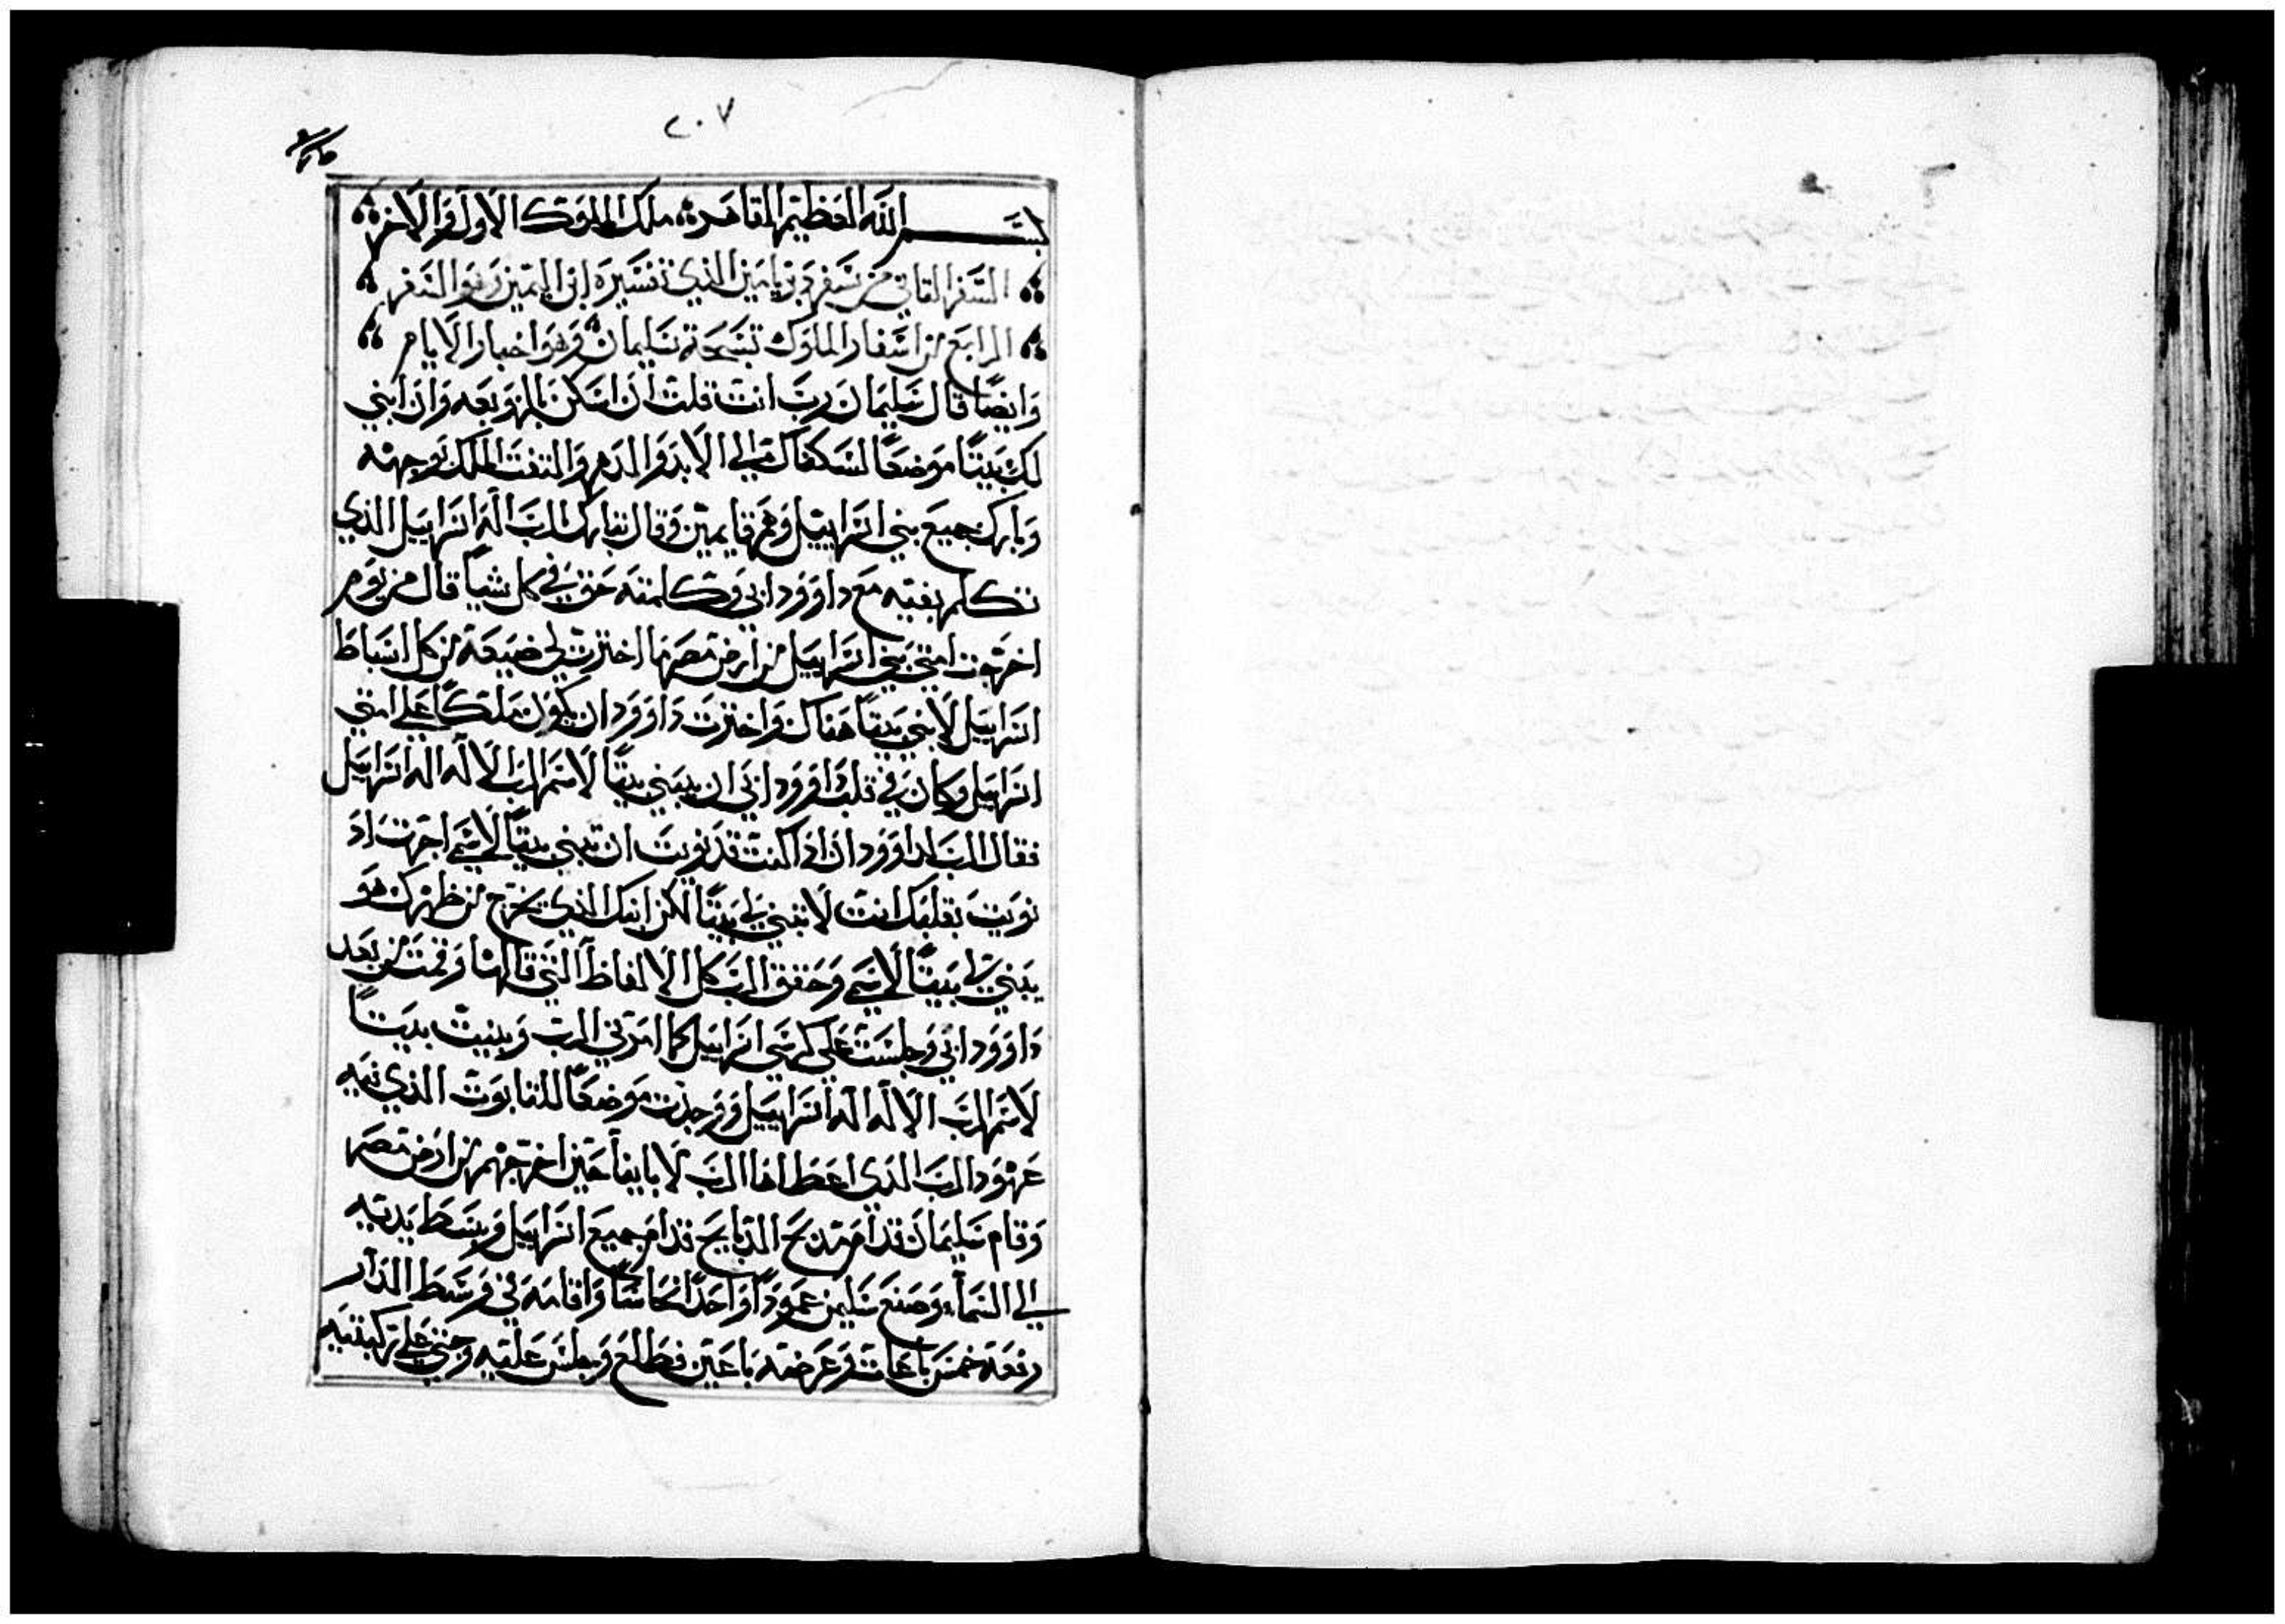 ٢٠٧
بسم الله العظيم القاهر ملك الملوك الاول والاخر
السفر الثاني من سفر بنيامين الذي تفسيره ابن اليمين وهو السفر
الرابع من اسفار الملوك تسبحة سليمان وهو اخبار الايام
وايضًا قال سليمان رب انت قلت ان اسكن بالهوبعه وان ابني
لك بيتًا موضعًا لسكناك الي الابد والدهر والتفت الملك بوجهه
وبارك جميع بني اسراييل وهم قايمين وقال تبارك الرب اله اسراييل الذي
تكلم بفيه مع داوود ابي وكلمته حق في كل شيا قال من يوم
اخرجت امتي بني اسراييل من ارض مصر ما اخترت لي ضيعة من كل اسباط
اسراييل لابني بيتًا هناك واخترت داوود ان يكون ملكًا علي امتي
اسراييل وكان في قلب داوود ابي ان يبني بيتًا لاسم الرب الاله اله اسراييل
فقال الرب لداوود ان اذا كنت قد نويت ان تبني بيتًا لاسمي اجرت اذ
نويت بقلبك انت لا تبني لي بيتًا لكن ابنك الذي يخرج من ظهرك هو
يبني لي بيتًا لاسمي وحقق الرب كل الالفاظ التي قالها وقمت من بعد
داوود ابي وجلست علي كرسي اسراييل كما امرني الرب وبنيت بيتًا
لاسم الرب الاله اله اسراييل ووجدت موضعًا للتابوت الذي فيه
عهود الرب الذي اعطاها الرب لاباينا حين اخرجهم من ارض مصر
وقام سليمان قدام مذبح الدبايح قدام جميع اسراييل وبسط يديه
الي السماء وصنع سليمن عمودًا واحدًا نحاسًا واقامه في وسط الدار
رفعة خمس باعات وعرضه باعين فطلع وجلس عليه وجثي علي ركبتيه